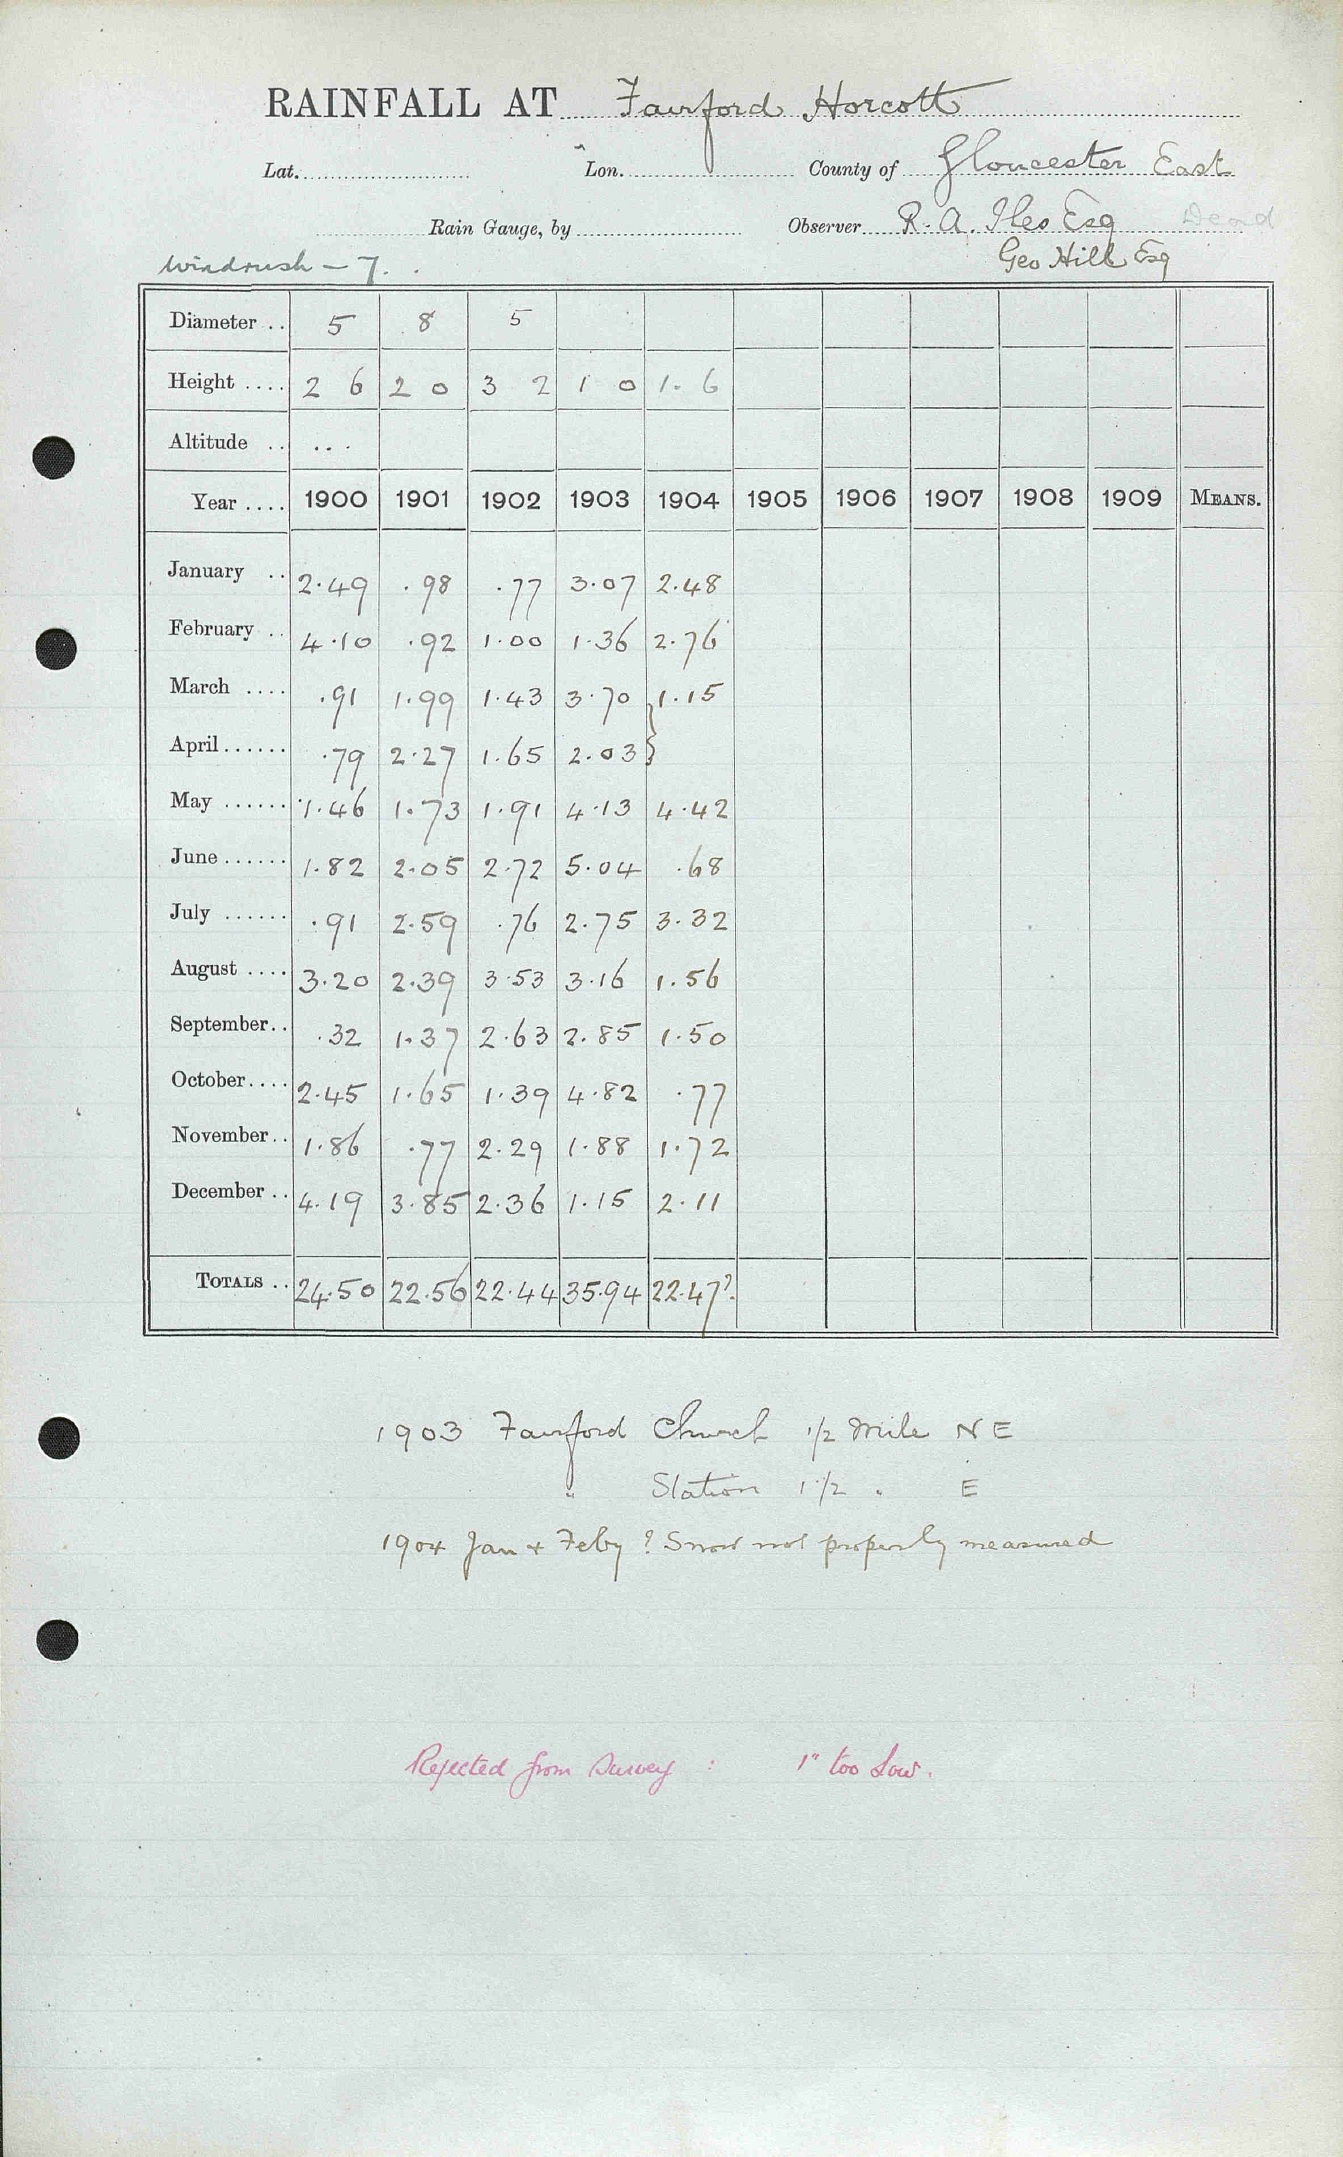 RAINFALL AT Fairford Horcott
Lat. Lon. County of Gloucester East
Rain Gauge, by Observer R. A. Iles Esq Dead
Windrush – 7. Geo Hill Esq
Diameter .. 5 8 5
Height .... 2 6 2 0 3 2 1 0 1. 6
Altitude .. ...
Year .... 1900 1901 1902 1903 1904 1905 1906 1907 1908 1909 MEANS.
January .. 2.49 .98 .77 3.07 2.48
February .. 4.10 .92 1.00 1.36 2.76
March .... .91 1.99 1.43 3.70 } 1.15
April ...... .79 2.27 1.65 2.03 }
May ...... 1.46 1.73 1.91 4.13 4.42
June ...... 1.82 2.05 2.72 5.04 .68
July ...... .91 2.59 .76 2.75 3.32
August .... 3.20 2.39 3.53 3.16 1.56
September.. .32 1.37 2.63 2.85 1.50
October.... 2.45 1.65 1.39 4.82 .77
November.. 1.86 .77 2.29 1.88 1.72
December .. 4.19 3.85 2.36 1.15 2.11
TOTALS .. 24.50 22.56 22.44 35.94 22.47?.
1903 Fairford Church 1/2 Mile NE
" Station 1 1/2 " E
1904 Jan + Feby ? Snow not properly measured
Rejected from Survey : 1" too low.